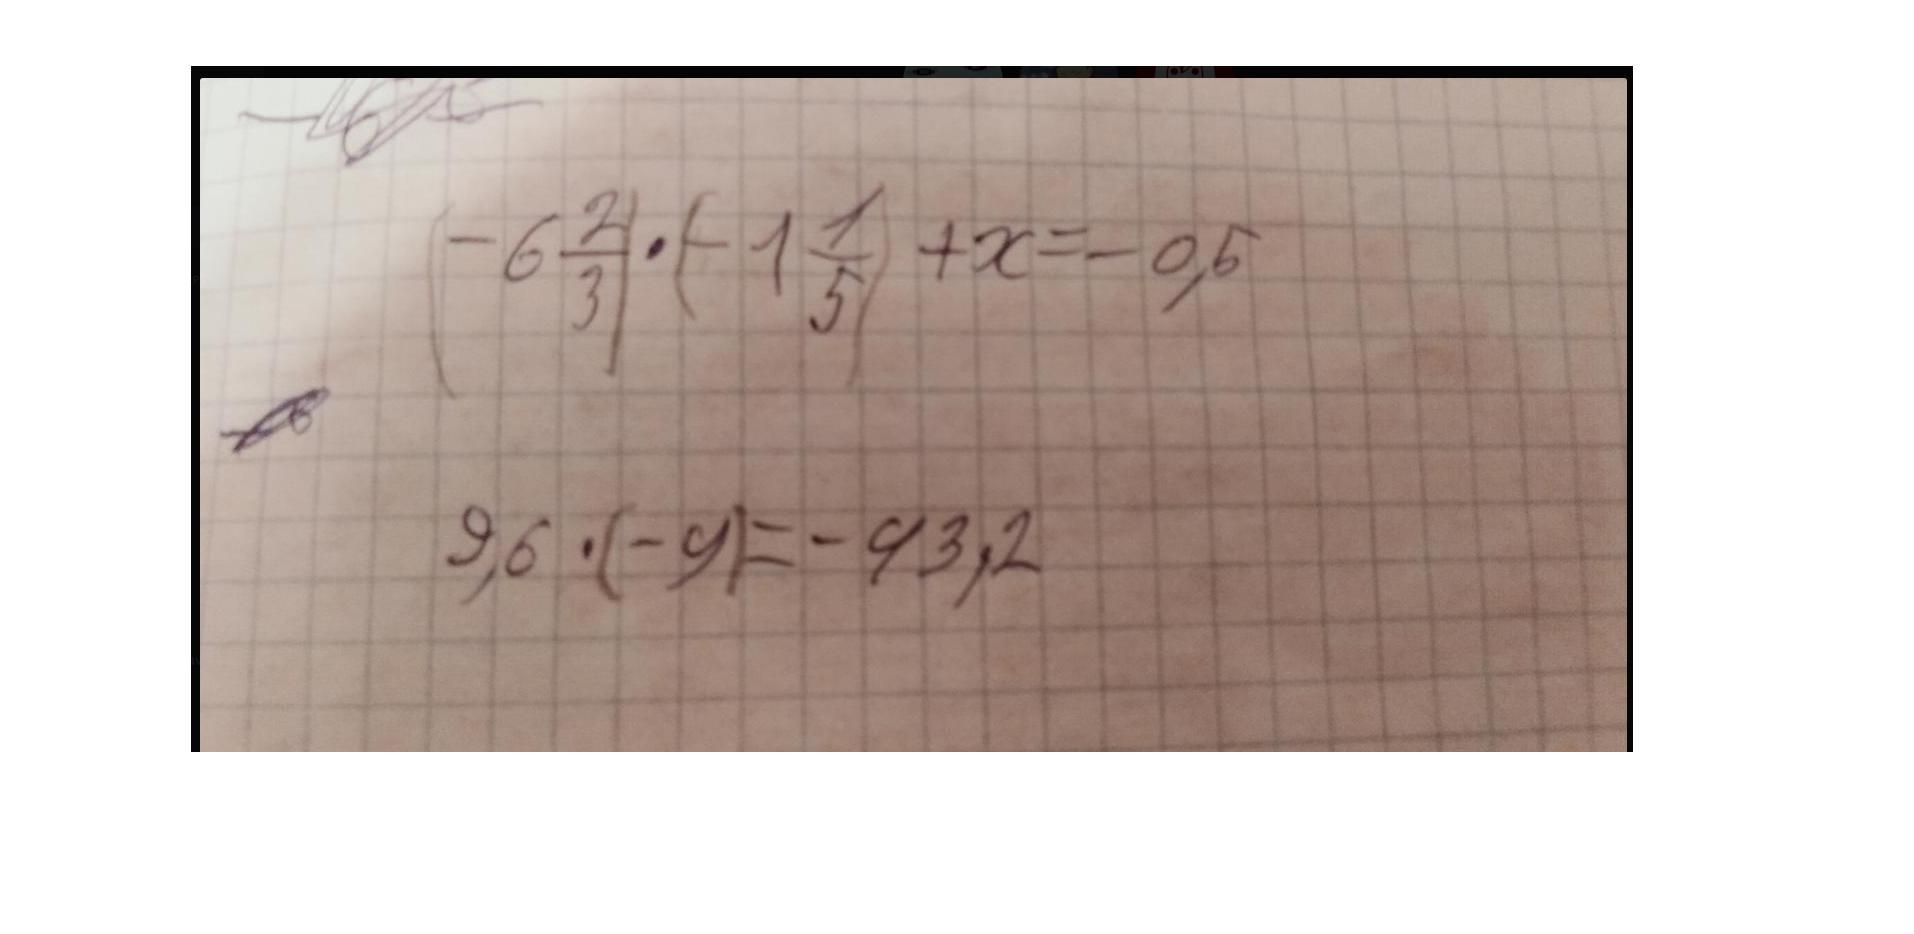 (-6 2/3) · (-1 1/5) + x = - 0,5
9,6 · (-y) = - 43,2